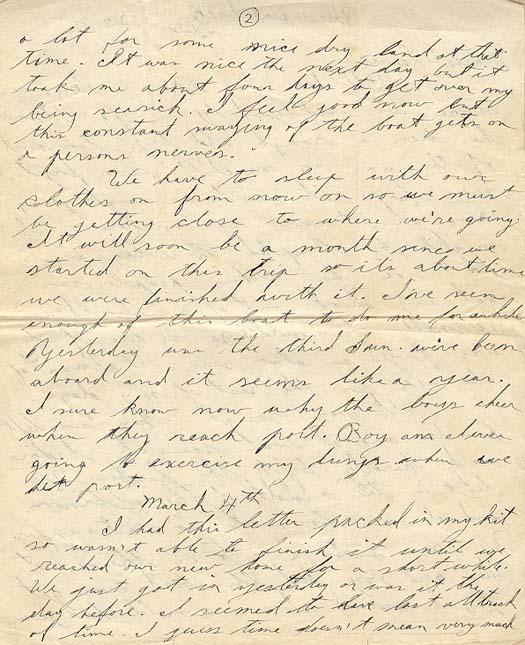 2
a lot for some nice dry land at that
time. It was nice the next day but it
took me about four days to get over my
being seasick. I feel good now but
this constant swaying of the boat gets on
a persons nerves.
We have to sleep with our
clothes on from now on so we must
be getting close to where we're going.
It will soon be a month since we
started on this trip so its about time
we were finished with it. I've seen
enough of this boat to do me for awhile
Yesterday was the third Sun. we've been
aboard and it seems like a year.
I sure know now why the boys cheer
when they reach port. Boy am I ever
going to exercise my lungs when we
hit port.
March 4th
I had this letter packed in my kit
so wasn't able to finish it until we
reached our new home for a short while.
We just got in yesterday or was it the
day before. I seemed to have lost all track
of time. I guess time doesn't mean very much